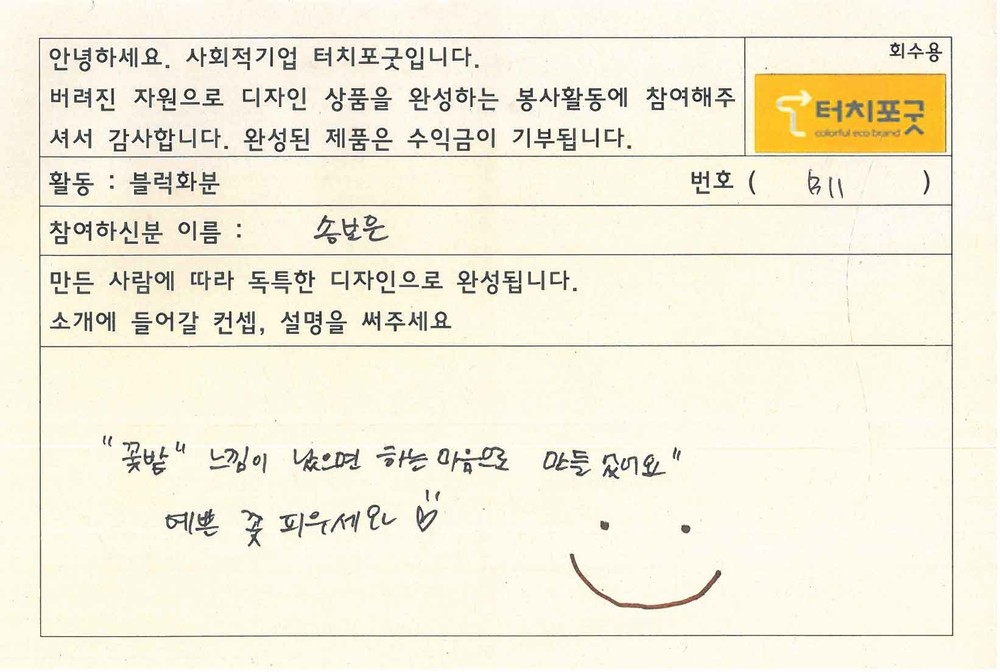 안녕하세요. 사회적기업 터치포굿입니다.
버려진 자원으로 디자인 상품을 완성하는 봉사활동에 참여해주
셔서 감사합니다. 완성된 제품은 수익금이 기부됩니다.
회수용
터치포굿
colorful eco brand
활동 : 블럭화분 번호 ( B11 )
참여하신분 이름 : 송보은
만든 사람에 따라 독특한 디자인으로 완성됩니다.
소개에 들어갈 컨셉, 설명을 써주세요
"꽃밭" 느낌이 났으면 하는 마음으로 만들었어요"
예쁜 꽃 피우세요